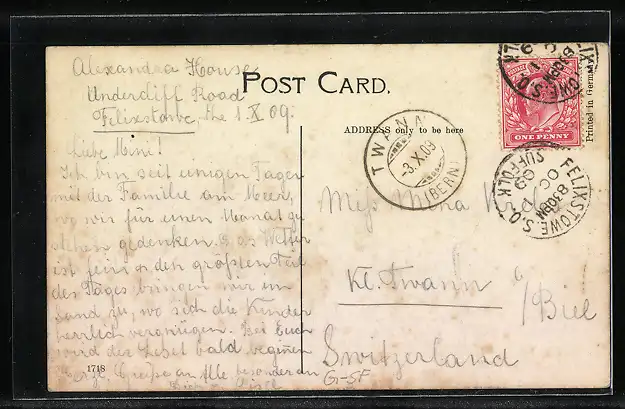 Alexandra House
Undercliff Road
Felixstowe, the 1.X.09.
Liebe Mini!
Ich bin seit einigen Tagen
mit der Familie am Meer,
wo wir für einen Monat zu
stehen gedenken. Das Wetter
ist fein u. den größten Teil
des Tages bringen wir im
Sand zu, wo sich die Kinder
herrlich vergnügen. Bei Euch
wird der Leset bald beginnen
Grüße an Alle besonders an
1718
POST CARD.
ADDRESS only to be here
Miss Mina
Kl. Twann
/Biel
Switzerland
G-SF
TWANN
-3.X.09
(BERN)
ONE PENNY
Printed in Germany
FELIXSTOWE S.O.
8.30PM
OC 1
09
SUFFOLK